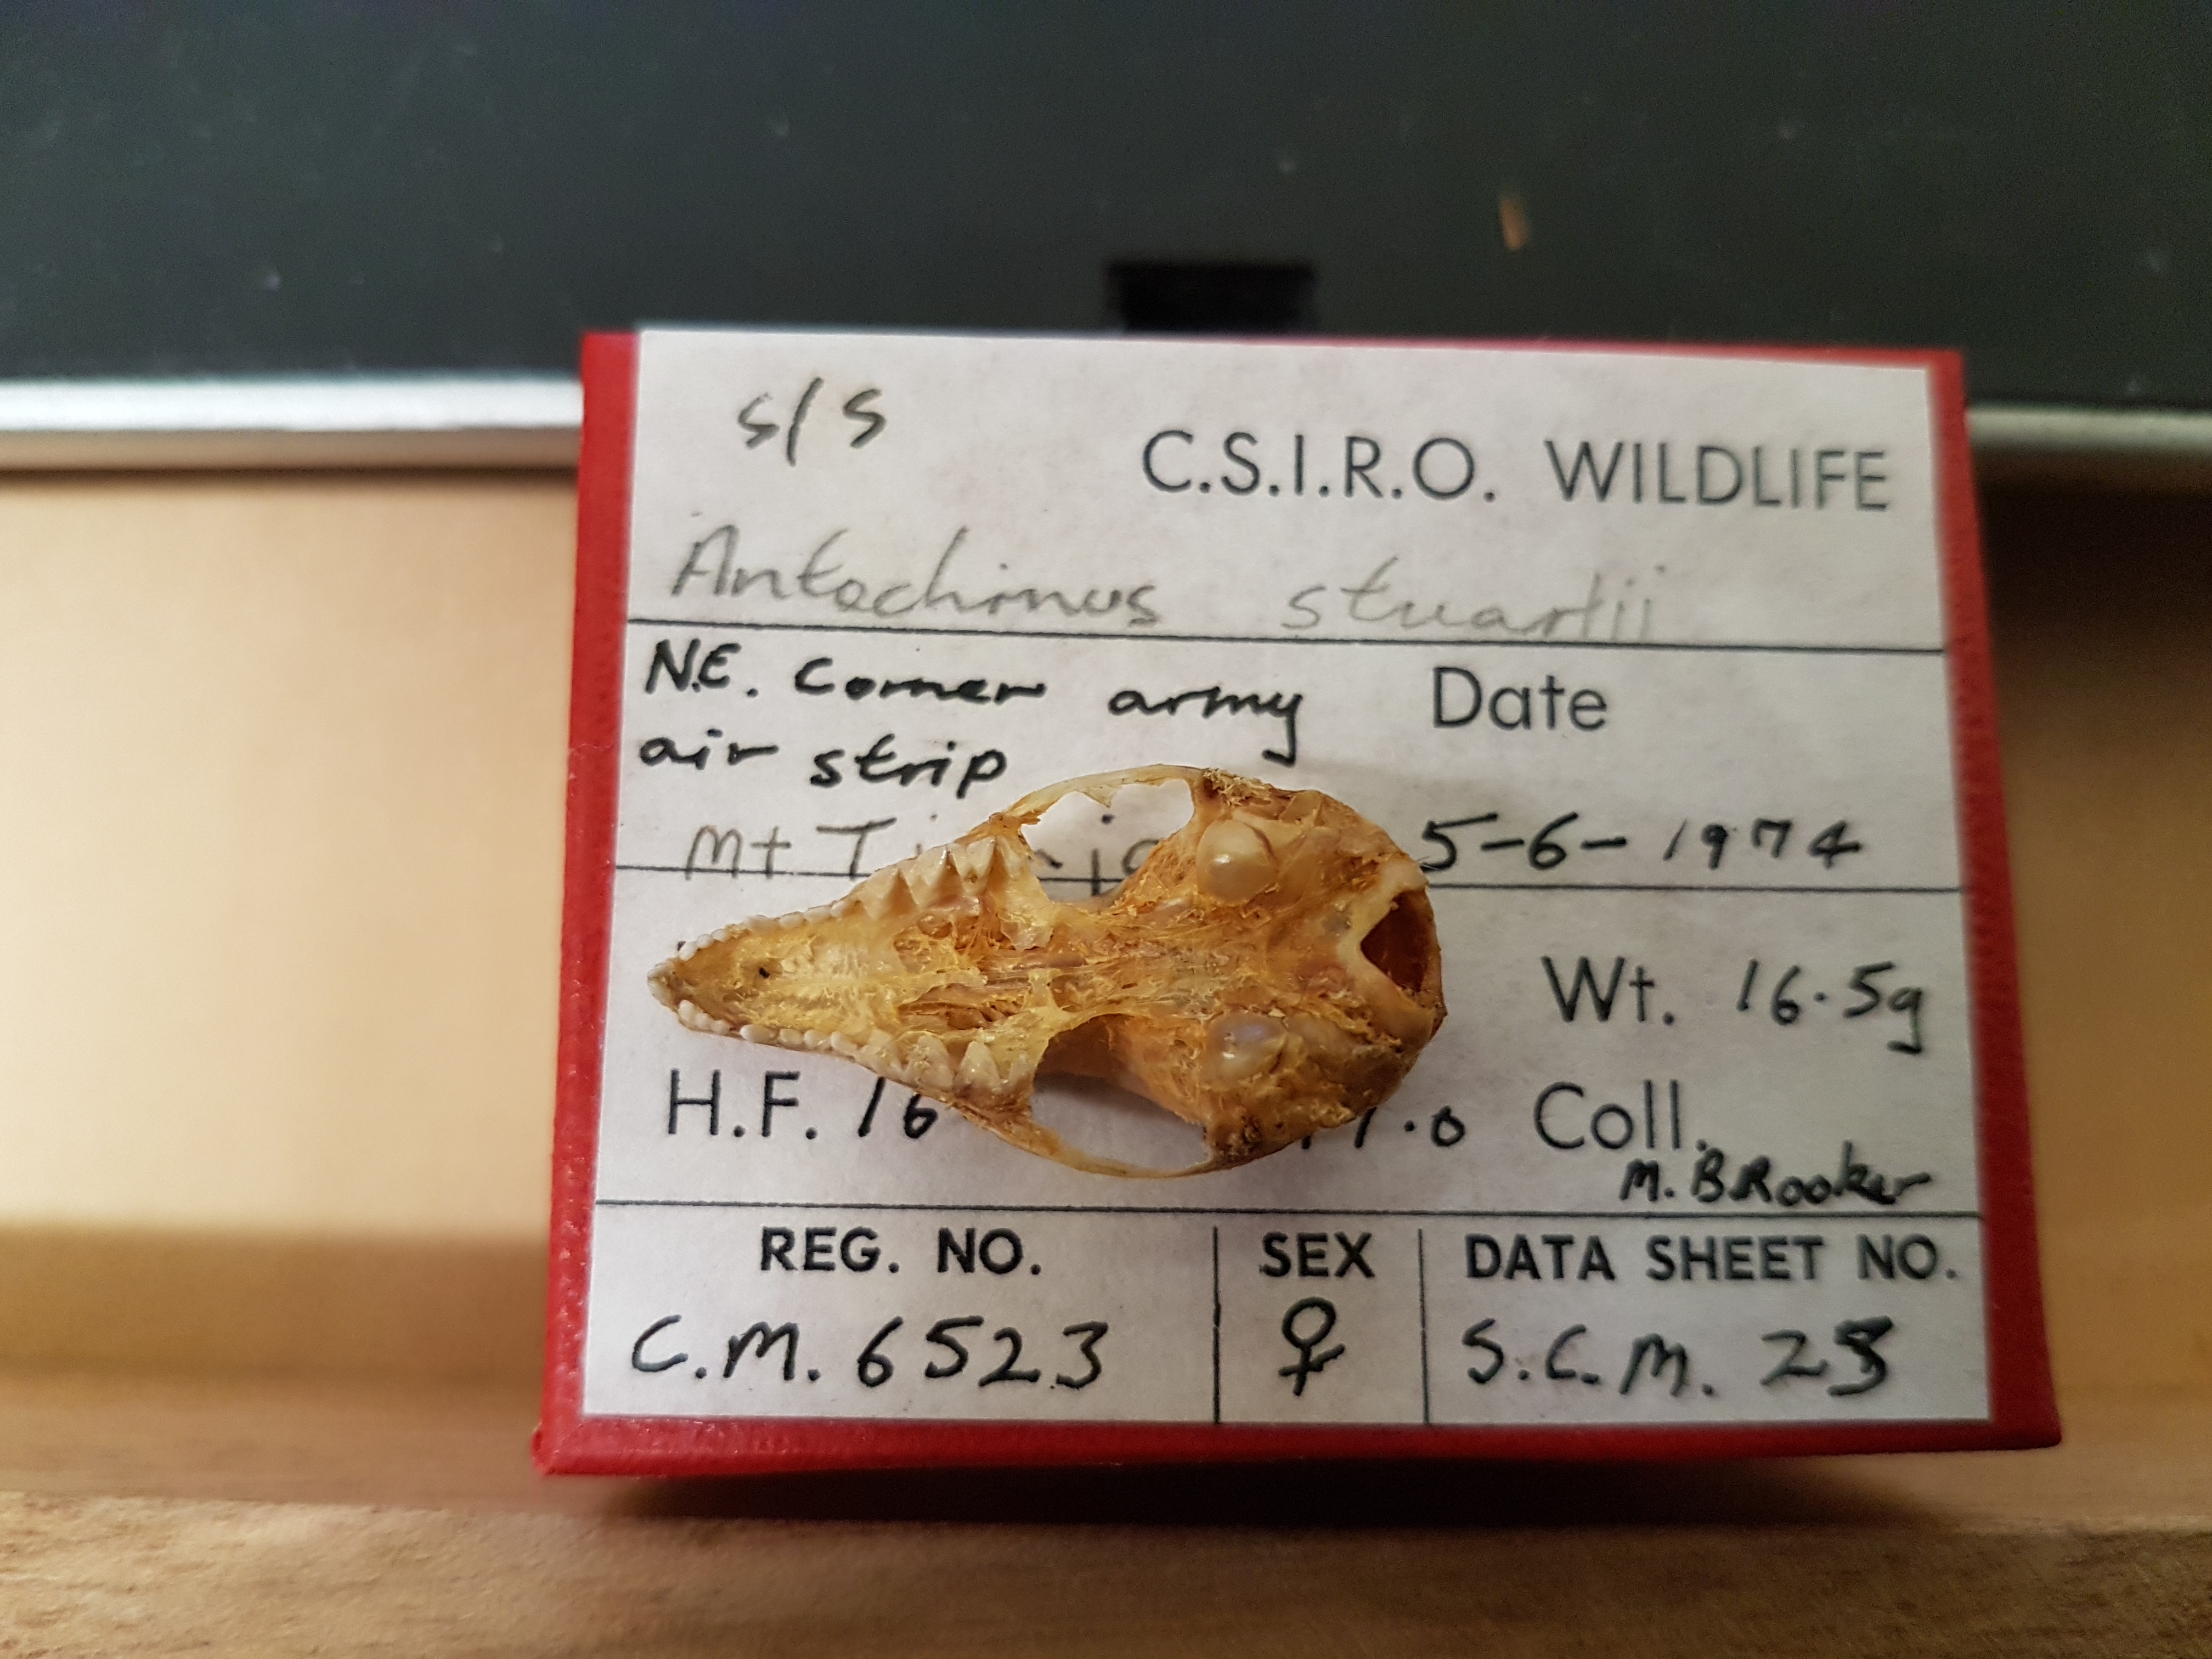 S/S C.S.I.R.O. WILDLIFE
Antechinus stuartii
N.E. Corner army Date
air strip
Mt 5-6-1974
Wt. 16.5g
H.F. 16 Coll
M. BRooker
REG. NO. SEX DATA SHEET NO.
C.M. 6523 ♀ S.C.M. 25